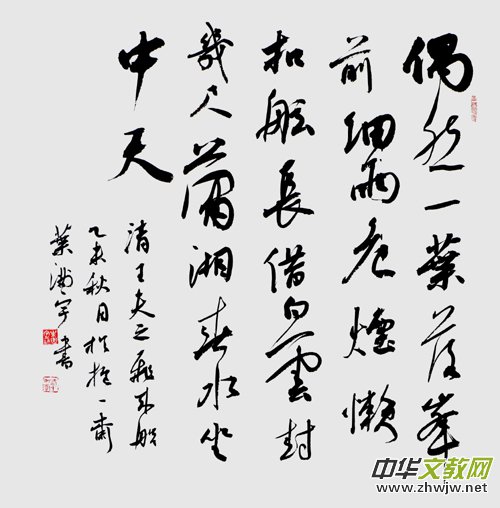 偶然一葉落峯
前細雨危煙懶
扣舷長借白雲封
幾尺瀟湘春水坐
中天
清王夫之飛來船
乙未秋日於抱一齋
葉宇書
中华文教网
www.zhwjw.net